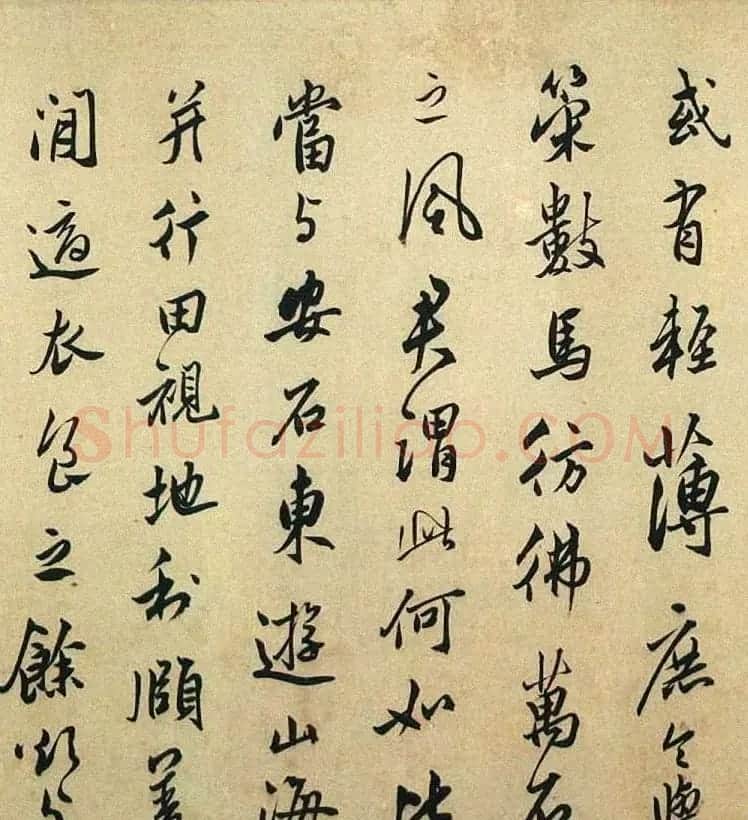 或有輕薄庶令
策數馬彷彿萬石
之風君謂此何如比
當与安石東遊山海
并行田視地利頤養
閒適衣食之餘欲与
Shufaziliao.COM